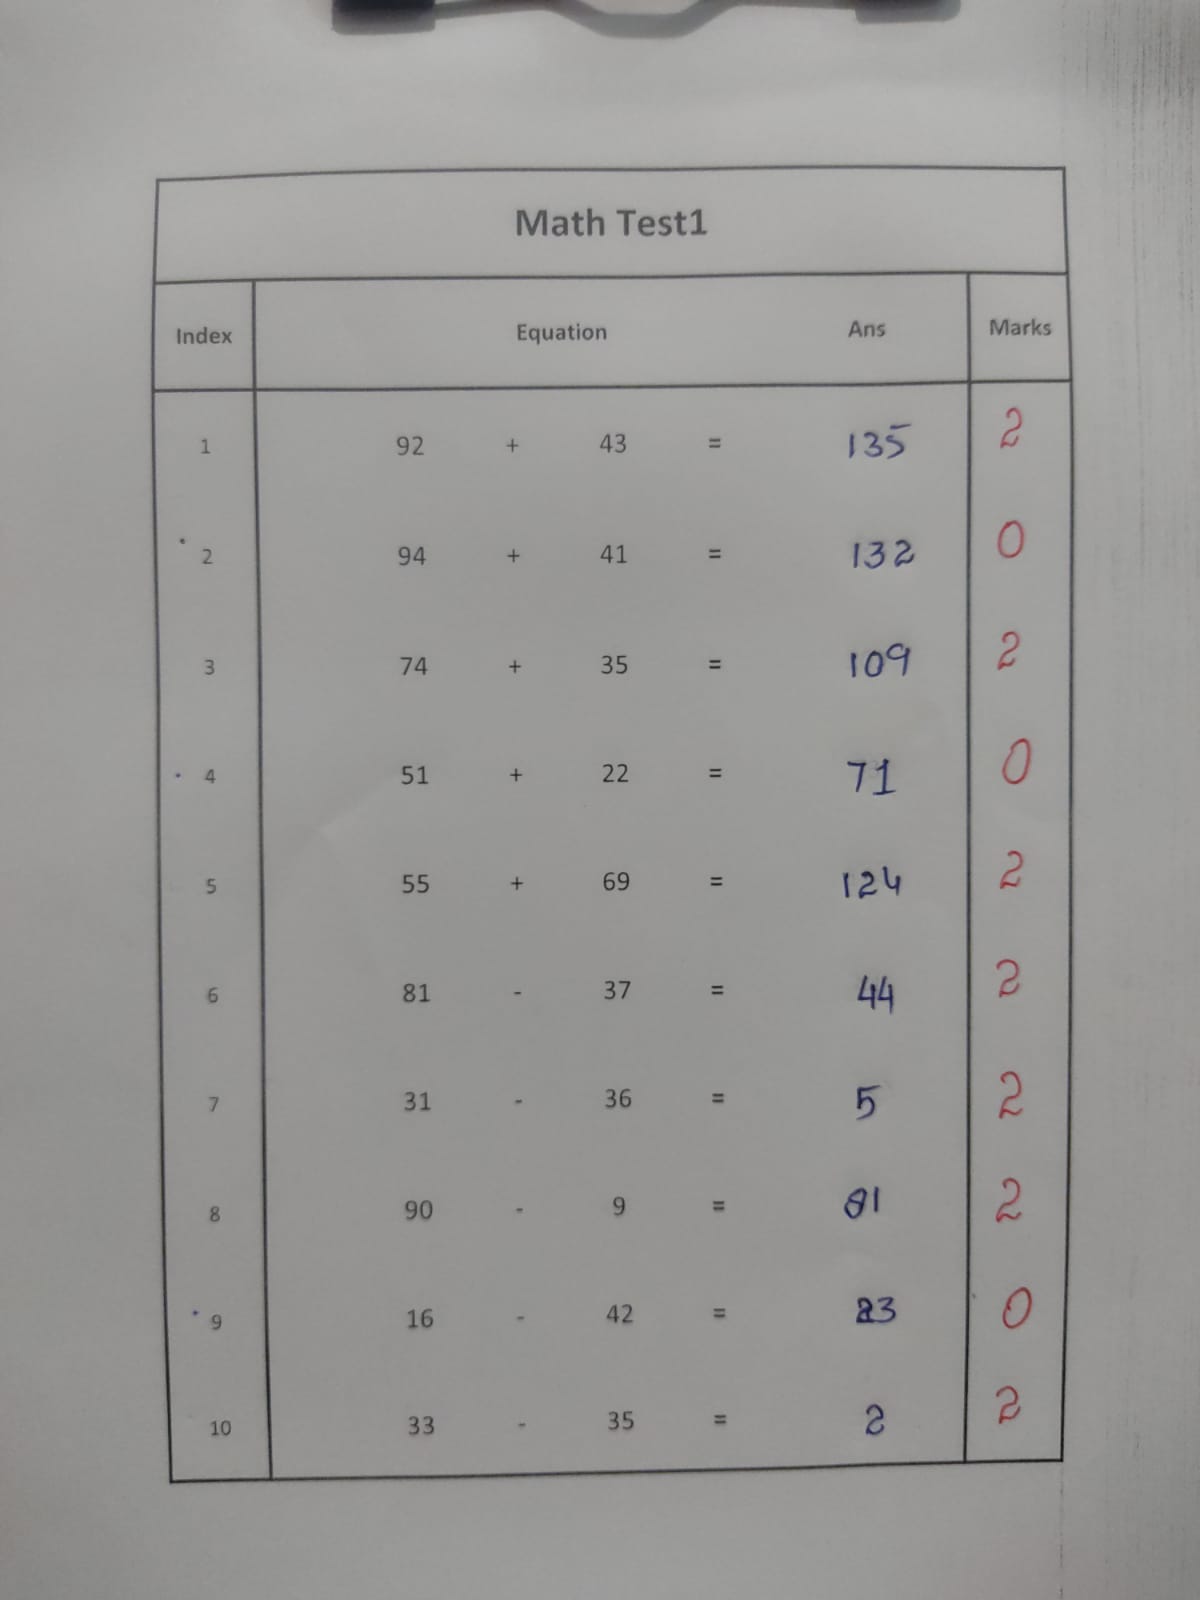 Math Test1
Index Equation Ans Marks
1 92 + 43 = 135 2
2 94 + 41 = 132 0
3 74 + 35 = 109 2
4 51 + 22 = 71 0
5 55 + 69 = 124 2
6 81 - 37 = 44 2
7 31 - 36 = 5 2
8 90 - 9 = 81 2
9 16 - 42 = 23 0
10 33 - 35 = 2 2